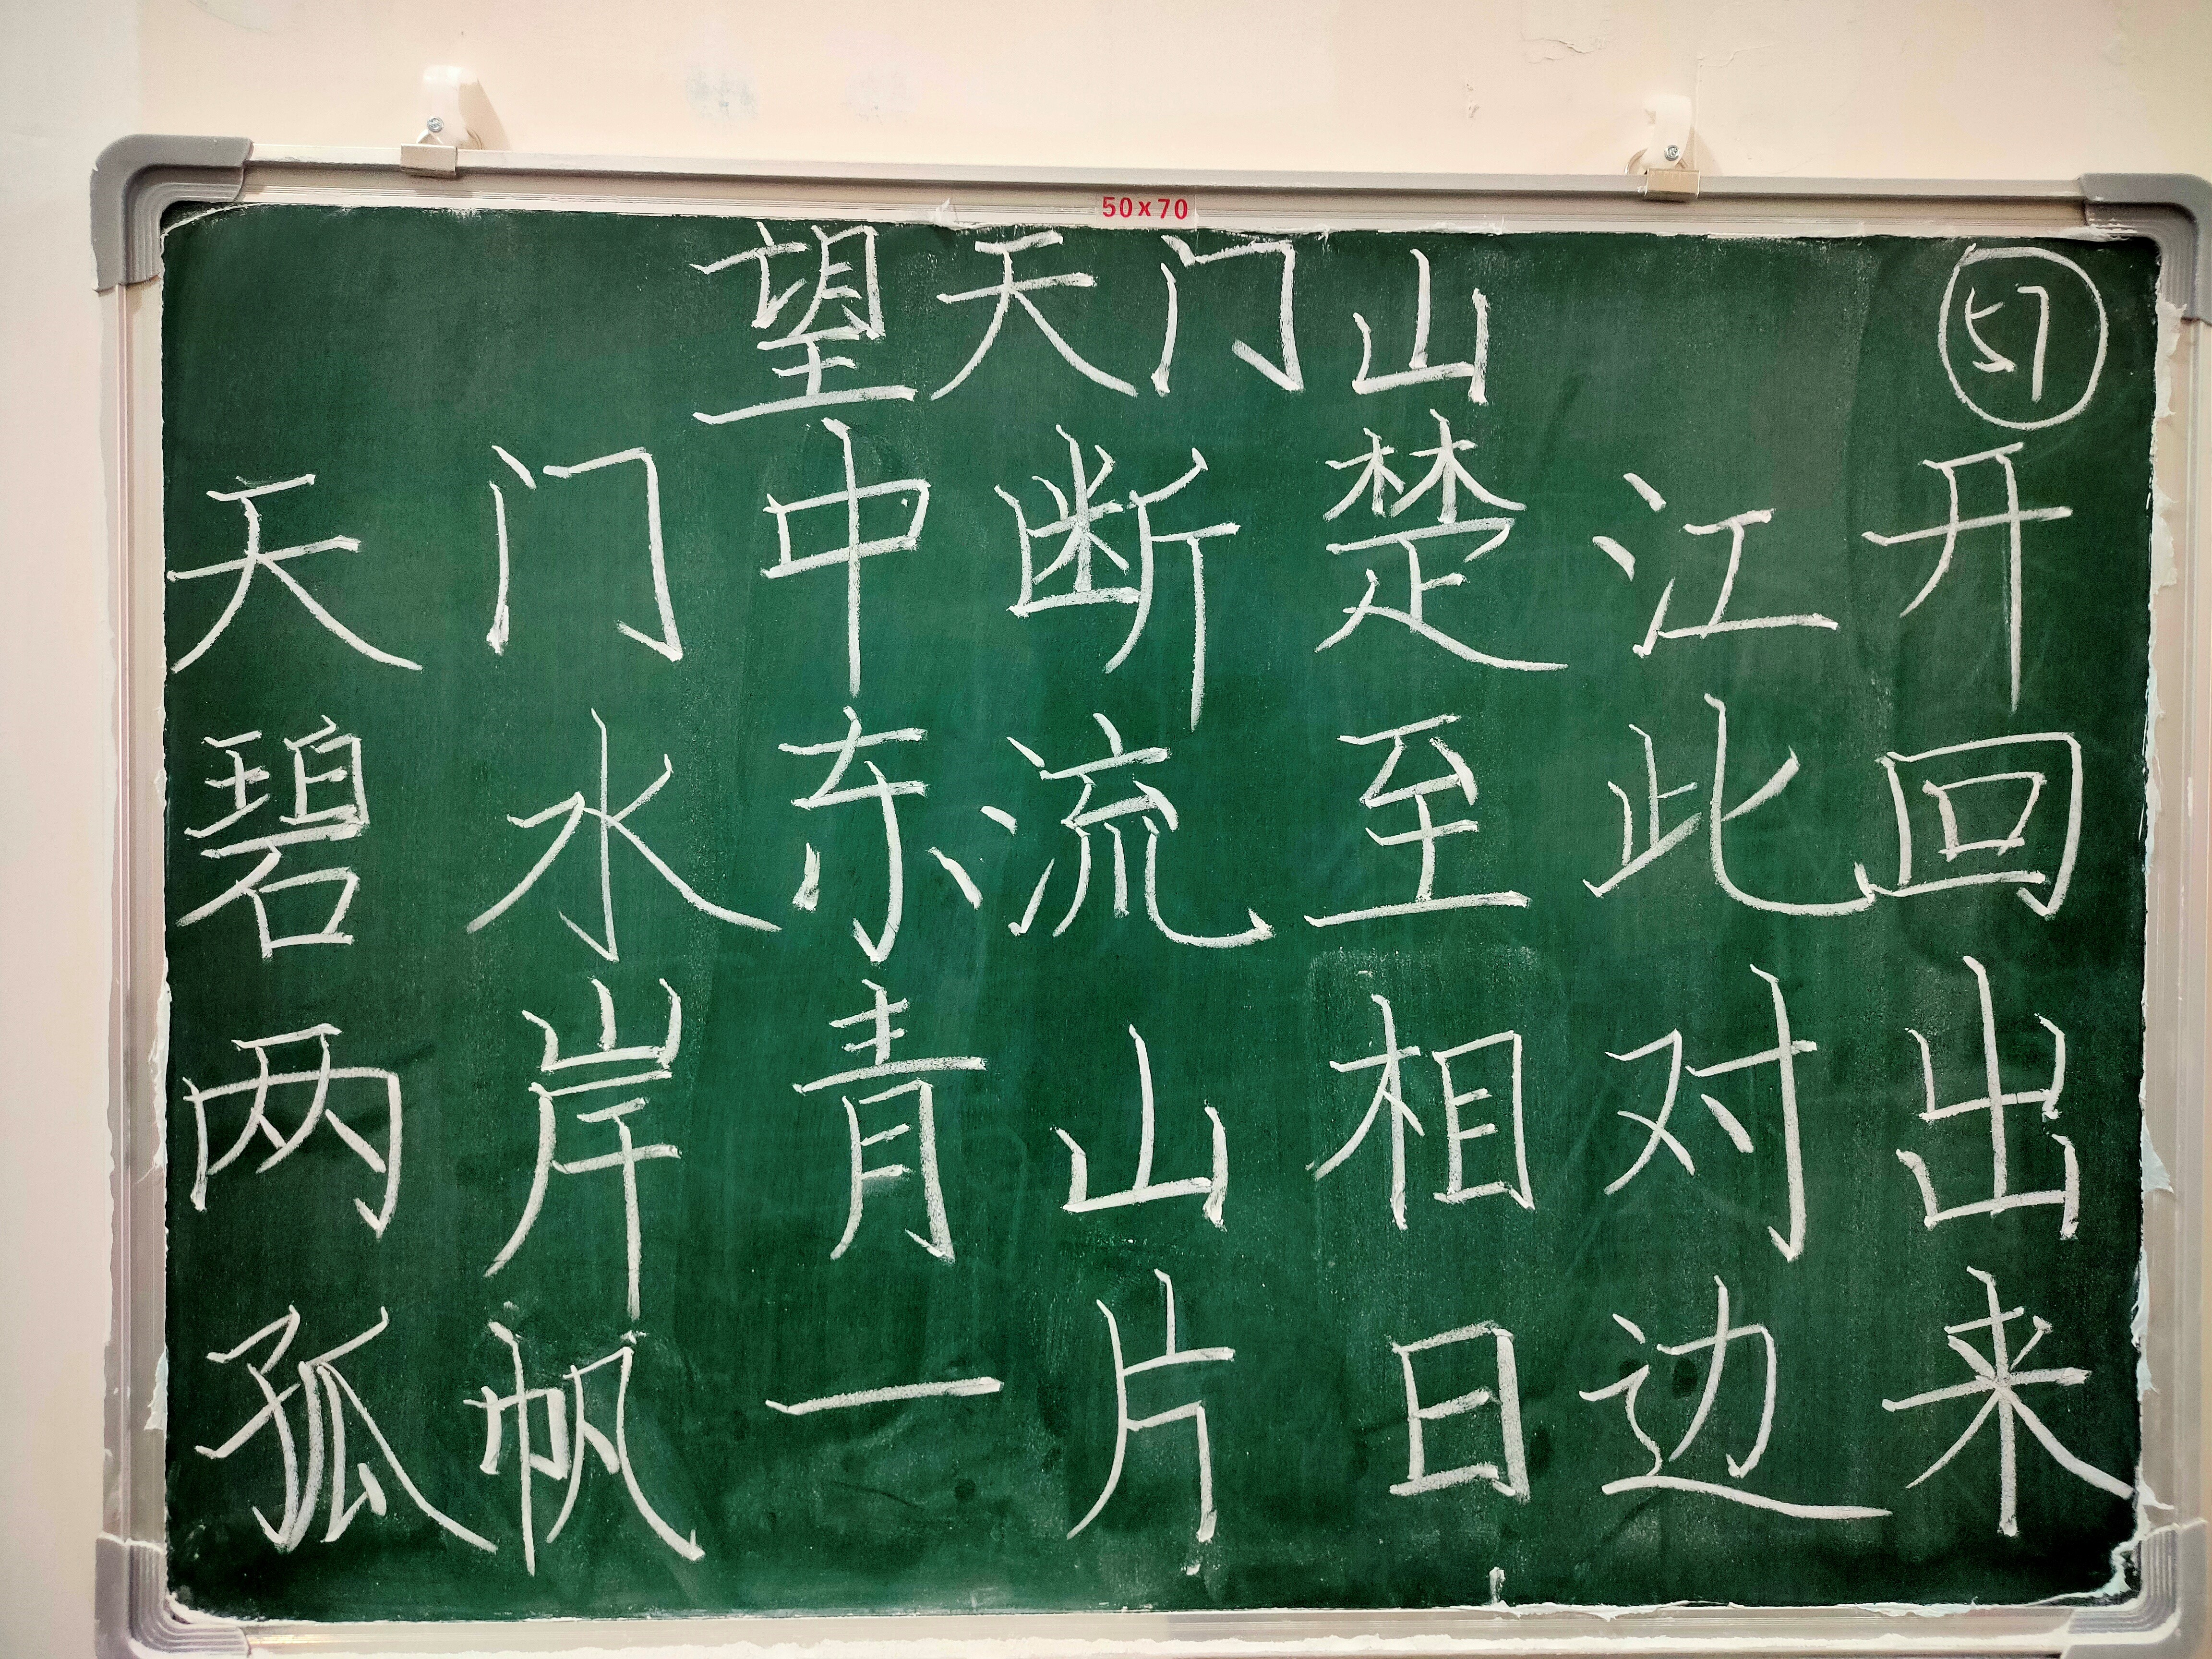 50×70
望天门山
57
天门中断楚江开
碧水东流至此回
两岸青山相对出
孤帆一片日边来